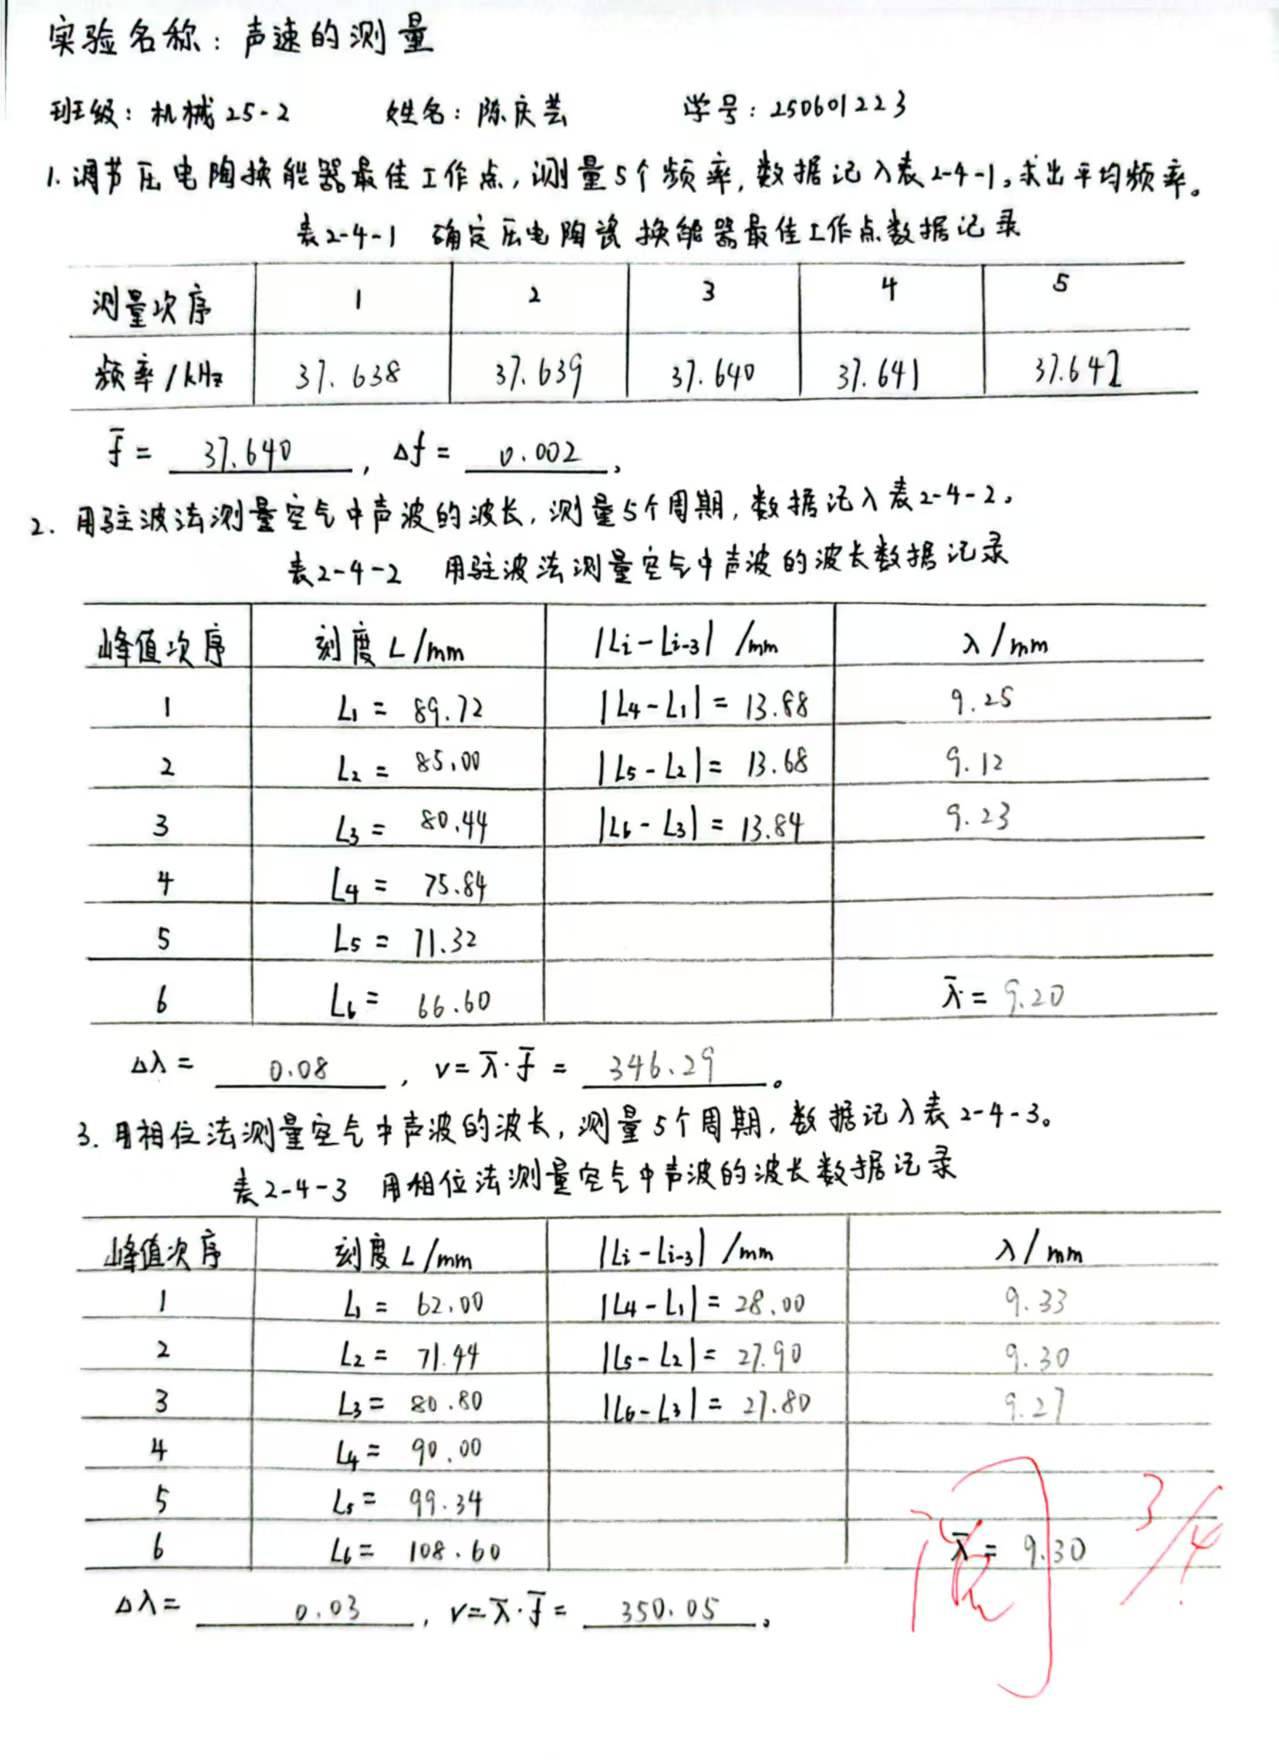 实验名称：声速的测量
班级：机械25-2 姓名：陈庆芸 学号：250601223
1. 调节压电陶换能器最佳工作点，测量5个频率，数据记入表2-4-1。求出平均频率。
表2-4-1 确定压电陶瓷换能器最佳工作点数据记录
测量次序 1 2 3 4 5
频率/kHz 37.638 37.639 37.640 37.641 37.642
f̄ = 37.640 ， Δf = 0.002 。
2. 用驻波法测量空气中声波的波长，测量5个周期，数据记入表2-4-2。
表2-4-2 用驻波法测量空气中声波的波长数据记录
峰值次序 刻度 L/mm |Li-Li-3| /mm λ/mm
1 L1 = 89.72 |L4-L1| = 13.88 9.25
2 L2 = 85.00 |L5-L2| = 13.68 9.12
3 L3 = 80.44 |L6-L3| = 13.84 9.23
4 L4 = 75.84
5 L5 = 71.32
6 L6 = 66.60 λ̄ = 9.20
Δλ = 0.08 ， v=λ̄·f̄ = 346.29 。
3. 用相位法测量空气中声波的波长，测量5个周期，数据记入表2-4-3。
表2-4-3 用相位法测量空气中声波的波长数据记录
峰值次序 刻度 L/mm |Li-Li-3| /mm λ/mm
1 L1 = 62.00 |L4-L1| = 28.00 9.33
2 L2 = 71.44 |L5-L2| = 27.90 9.30
3 L3 = 80.80 |L6-L3| = 27.80 9.27
4 L4 = 90.00
5 L5 = 99.34
6 L6 = 108.60 λ̄ = 9.30
Δλ = 0.03 ， v=λ̄·f̄ = 350.05 。
3/4